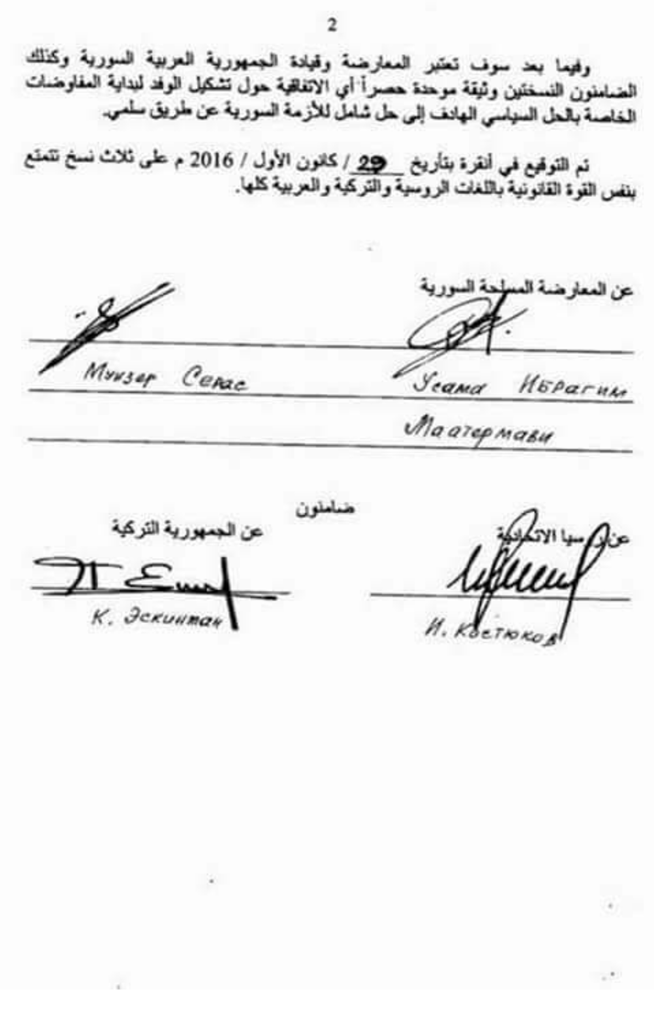 2
وفيما بعد سوف تعتبر المعارضة وقيادة الجمهورية العربية السورية وكذلك
الضامنون النسختين وثيقة موحدة حصراً أي الاتفاقية حول تشكيل الوفد لبداية المفاوضات
الخاصة بالحل السياسي الهادف إلى حل شامل للأزمة السورية عن طريق سلمي.
تم التوقيع في أنقرة بتأريخ 29 / كانون الأول / 2016 م على ثلاث نسخ تتمتع
بنفس القوة القانونية باللغات الروسية والتركية والعربية كلها.
عن المعارضة المسلحة السورية
Усама Ибрагим
Мунзер Серас
Маатермави
ضامنون
عن روسيا الاتحادية
عن الجمهورية التركية
И. Костюков
К. Эскинтан